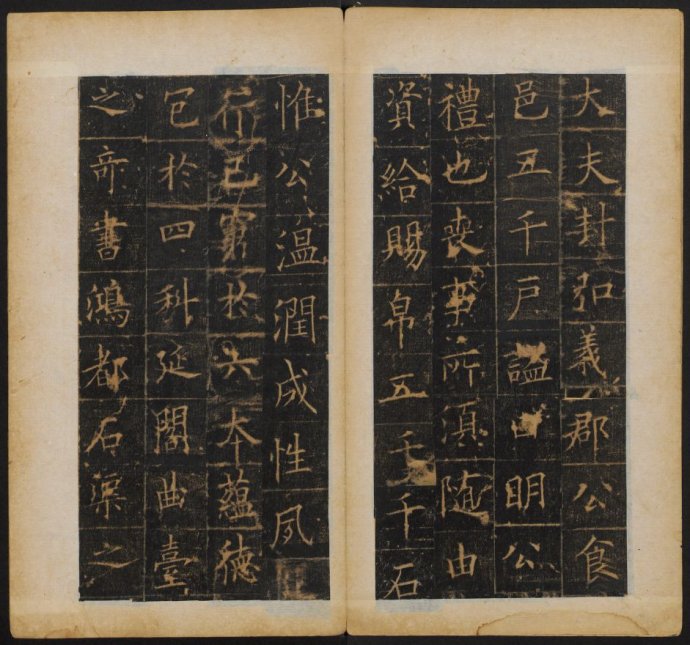 大夫封弘義郡公食
邑五千戶謚曰明公
禮也喪事所須隨由
資給賜帛五千千石
惟公溫潤成性夙
行己窮於六本蘊德
包於四科延閣曲臺
之奇書鴻都石渠之